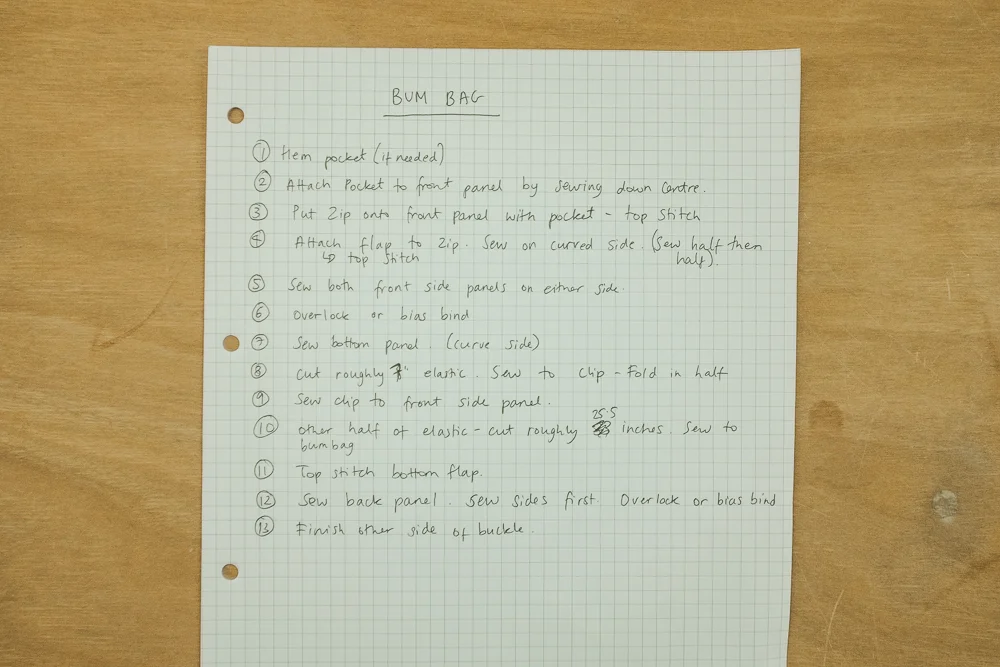 BUM BAG
① Hem pocket (if needed)
② Attach Pocket to front panel by sewing down Centre.
③ Put Zip onto front panel with pocket - top stitch
④ Attach flap to Zip. Sew on curved side. (Sew half then
↳ top stitch half).
⑤ Sew both front side panels on either side.
⑥ Overlock or bias bind
⑦ Sew bottom panel. (curve side)
⑧ Cut roughly " elastic. Sew to Clip - Fold in half
⑨ Sew clip to front side panel.
25.5
⑩ Other half of elastic - cut roughly inches. Sew to
bumbag
⑪ Top stitch bottom flap.
⑫ Sew back panel. Sew sides first. Overlock or bias bind
⑬ Finish other side of buckle.